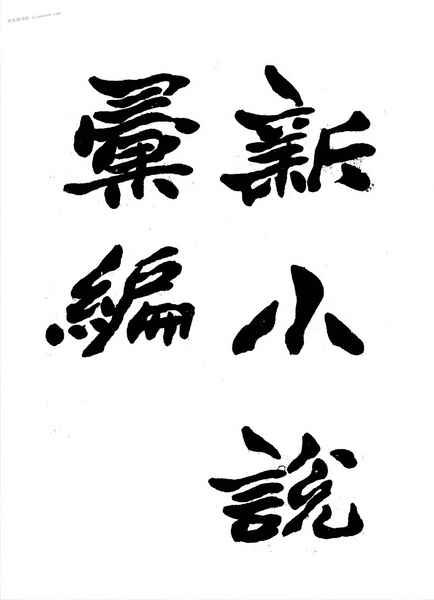 新小說
彙編